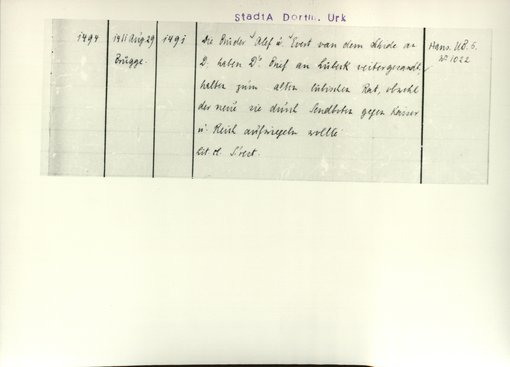 StadtA Dortm. Urk
1494 1411 Aug 29 1491 Die Brüder Alef u. Evert van dem Schede an Hans. UB. 5.
Brügge. D. haben D's Brief an Lübeck weitergesandt, № 1022
halten zum alten lübischen Rat, obwohl
der neue sie durch Sendboten gegen Kaiser
u. Reich aufwiegeln wollte
Lit. cl. S'vest.